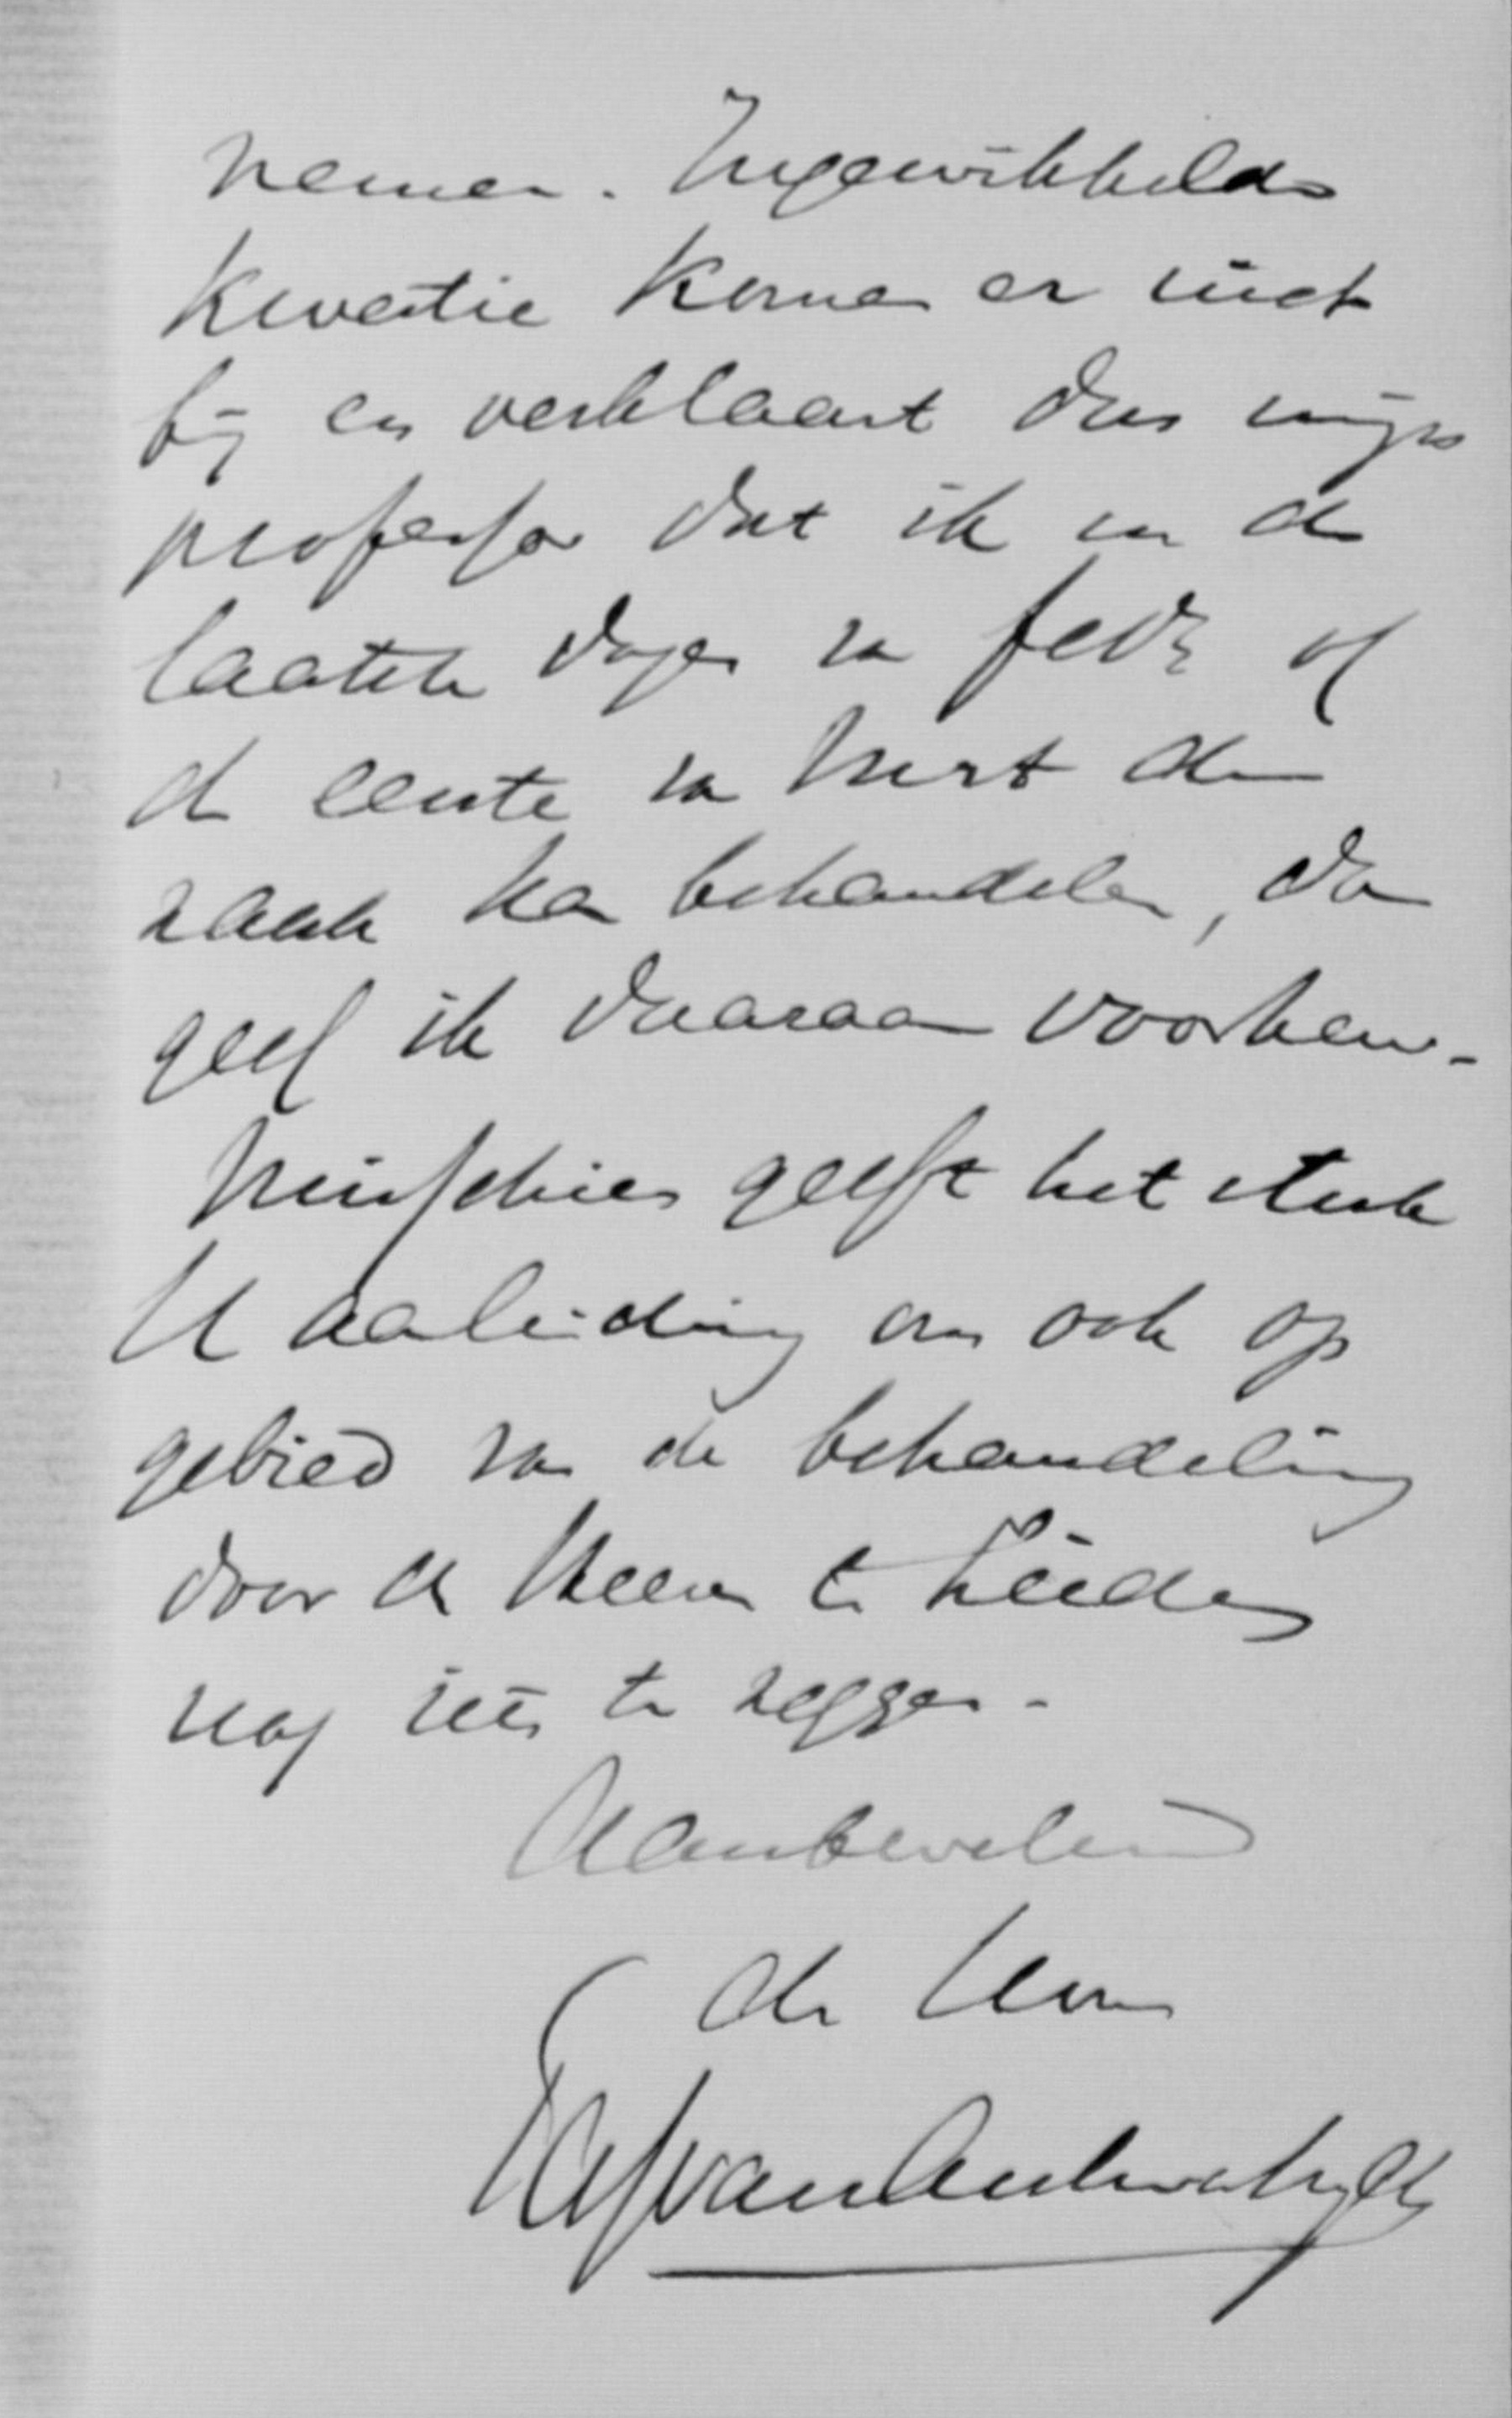 nemen. Ingewikkelde
kwestie komen er niet
bij en verklaart dus mijn
professor dat ik in de
laatste dagen van febr. of
de eerste van Mrt de
zaak kan behandelen, dan
geef ik daaraan voorkeur.
Misschien geeft het stuk
U aanleiding om ook op
gebied van de behandeling
door de Heeren te Leiden
nog iets te zeggen.
Aanbevelend
de Uwe